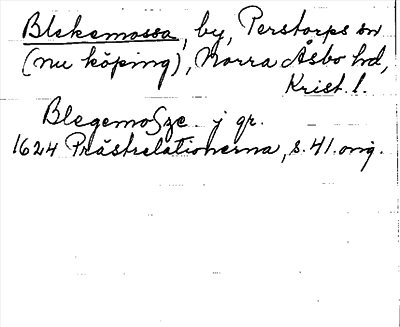 Blekemossa, by, Perstorps sn
(nu köping), Norra Åsbo hd,
Krist. l.
Blegemosze j gr.
1624 Prästrelationerna, s. 41. orig.